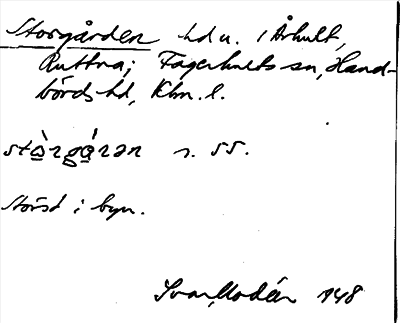 Storgården hd u. i Århult,
Ruttna; Fagerhults sn, Hand-
börds hd, Klm. l.
stòrgárən s. 55.
störst i byn.
Ivar Modéer 1948